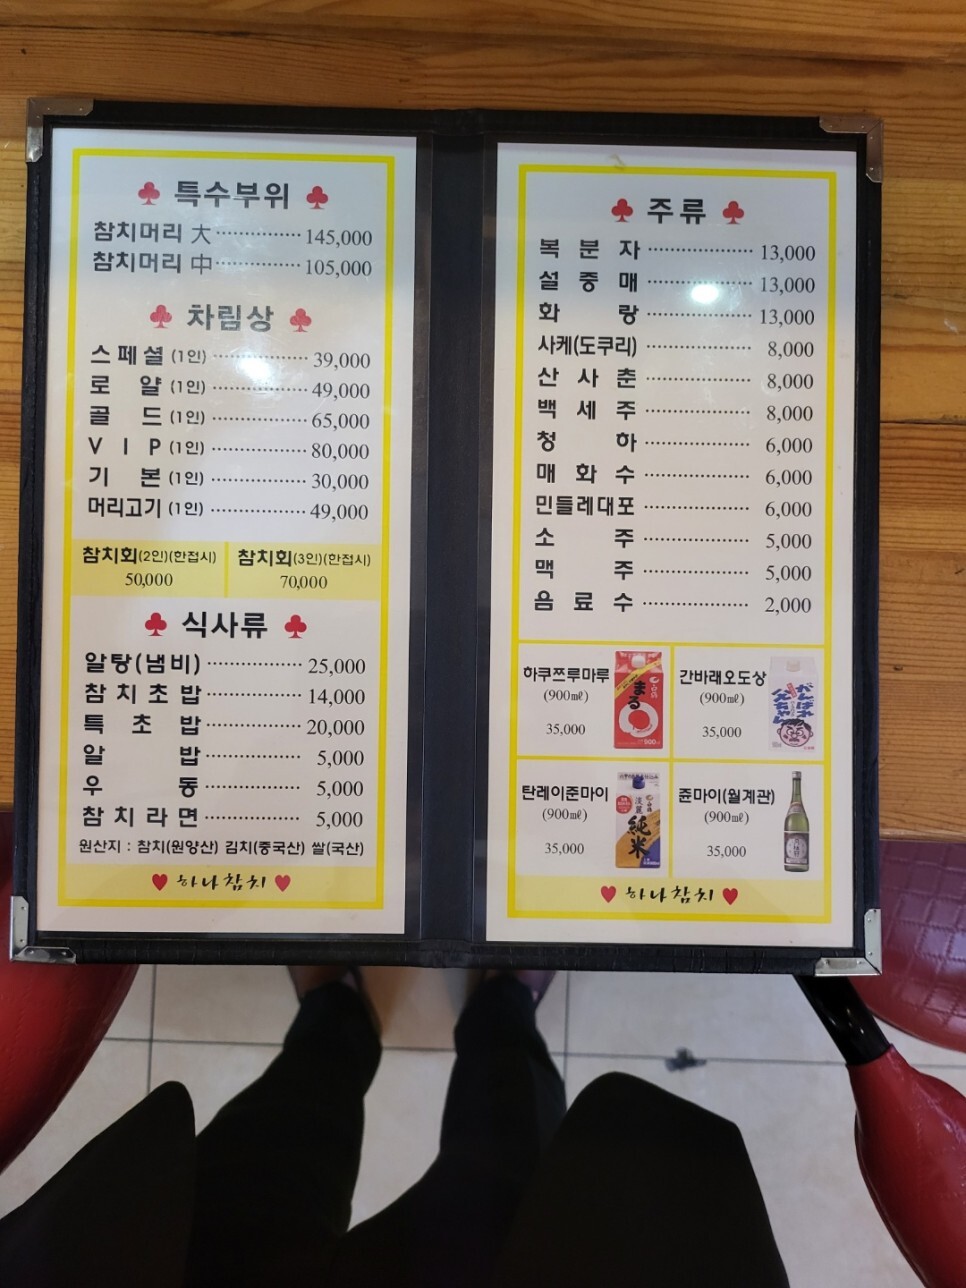 특수부위
참치머리 大 145,000
참치머리 中 105,000
차림상
스페셜 (1인) 39,000
로얄 (1인) 49,000
골드 (1인) 65,000
VIP (1인) 80,000
기본 (1인) 30,000
머리고기 (1인) 49,000
참치회(2인)(한접시) 참치회(3인)(한접시)
50,000 70,000
식사류
알탕(냄비) 25,000
참치초밥 14,000
특초밥 20,000
알밥 5,000
우동 5,000
참치라면 5,000
원산지 : 참치(원양산) 김치(중국산) 쌀(국산)
하나참치
주류
복분자 13,000
설중매 13,000
화랑 13,000
사케(도쿠리) 8,000
산사춘 8,000
백세주 8,000
청하 6,000
매화수 6,000
민들레대포 6,000
소주 5,000
맥주 5,000
음료수 2,000
하쿠쯔루마루
(900㎖)
35,000
まる
간바래오도상
(900㎖)
35,000
がんばれ
탄레이준마이
(900㎖)
35,000
淡麗
純米
쥰마이(월계관)
(900㎖)
35,000
하나참치